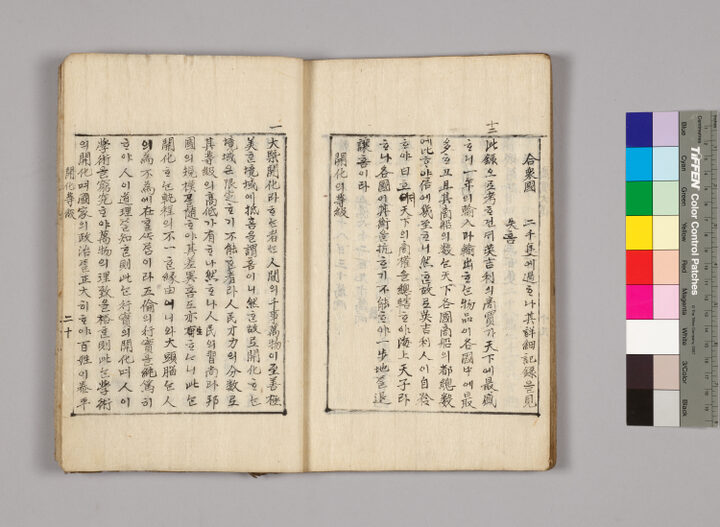 合衆國 二千隻에過ᄒᆞ나其詳細記錄을見
失홈
十二 此錄으로考ᄒᆞ건ᄃᆡ英吉利의商買가天下에最盛
ᄒᆞ니一年의輸入과輸出ᄒᆞᄂᆞᆫ物品이各國中에最
多ᄒᆞ고且其商船의數ᄂᆞᆫ天下各國商船의都總數
에比ᄒᆞ야倍에幾至ᄒᆞ니然ᄒᆞᆫ故로英吉利人이自矜
ᄒᆞ야曰호ᄃᆡ天下의商權을總轄ᄒᆞ야海上天子라
ᄒᆞ나各國이其術을抗ᄒᆞ기不能ᄒᆞ야一步地를退
讓홈이라
開化의等級
一 大槩開化라ᄒᆞᄂᆞᆫ者ᄂᆞᆫ人間의千事萬物이至善極
美ᄒᆞᆫ境域에抵홈을謂홈이니然ᄒᆞᆫ故로開化ᄒᆞᄂᆞᆫ
境域은限定ᄒᆞ기不能ᄒᆞᆫ者라人民才力의分數로
其等級의高低가有ᄒᆞ나然ᄒᆞ나人民의習尙과邦
國의規模를隨ᄒᆞ야其差異홈도亦生ᄒᆞᄂᆞ니此ᄂᆞᆫ
開化ᄒᆞᄂᆞᆫ軌程의不一ᄒᆞᆫ緣由어니와大頭腦ᄂᆞᆫ人
의爲不爲에在ᄒᆞᆯᄯᆞᄅᆞᆷ이라五倫의行實을純篤히
ᄒᆞ야人이道理를知ᄒᆞᆫ則此ᄂᆞᆫ行實의開化며人이
學術을窮究ᄒᆞ야萬物의理致를格ᄒᆞᆫ則此ᄂᆞᆫ學術
의開化며國家의政治를正大히ᄒᆞ야百姓이泰平
開化等級 二十
TIFFEN Color Control Patches
Blue
Cyan
Green
Yellow
Red
Magenta
White
3/Color
Black